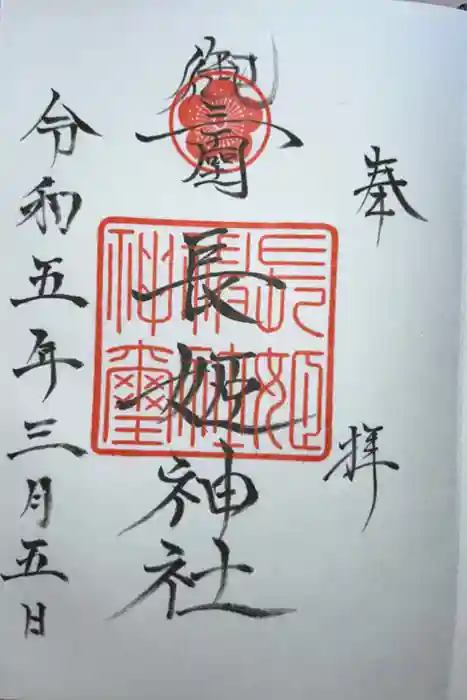 奉拝
長姫神社
令和五年三月五日
長姫
神璽